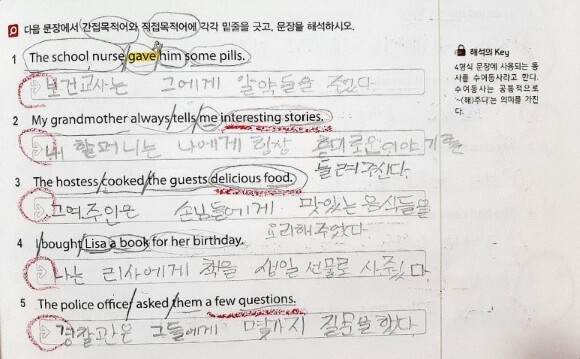 다음 문장에서 간접목적어와 직접목적어에 각각 밑줄을 긋고, 문장을 해석하시오.
1 The school nurse gave him some pills.
보건교사는 그에게 알약들을 주었다
2 My grandmother always tells me interesting stories.
내 할머니는 나에게 항상 흥미로운 이야기를
들려주신다.
3 The hostess cooked the guests delicious food.
그 여주인은 손님들에게 맛있는 음식들을
요리해주었다
4 I bought Lisa a book for her birthday.
나는 리사에게 책을 생일 선물로 사주었다
5 The police officer asked them a few questions.
경찰관은 그들에게 몇가지 질문을 했다
해석의 Key
4형식 문장에 사용되는 동
사를 수여동사라고 한다.
수여동사는 공통적으로
'~(해)주다'는 의미를 가진
다.